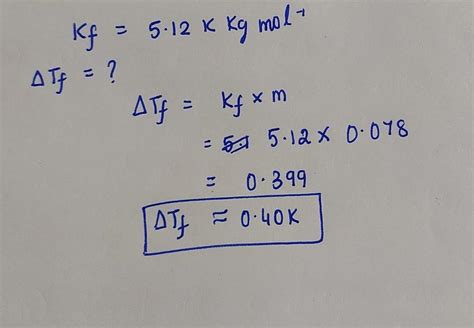 Kf = 5.12 K Kg mol⁻¹
ΔTf = ?
ΔTf = Kf × m
= 5.12 × 0.078
= 0.399
ΔTf ≈ 0.40K